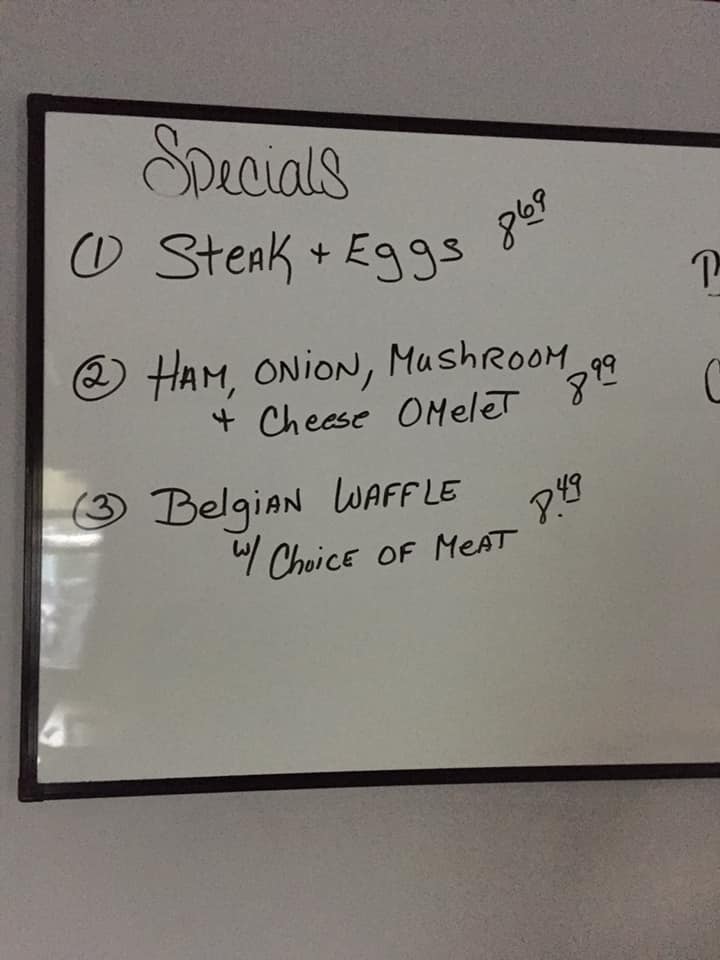 Specials
① Steak + Eggs 8 69
② Ham, Onion, Mushroom
+ Cheese Omelet 8 99
③ Belgian Waffle 8.49
w/ Choice of Meat